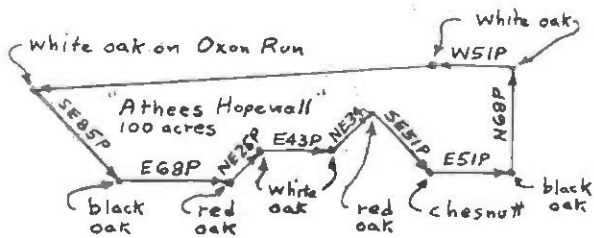 white oak
white oak
white oak on Oxon Run
W51P
"Athees Hopewall"
100 acres
SE85P
E68P
NE26P
E43P
NE34
SE51P
E51P
N68P
black
oak
red
oak
white
oak
red
oak
chesnutt
black
oak